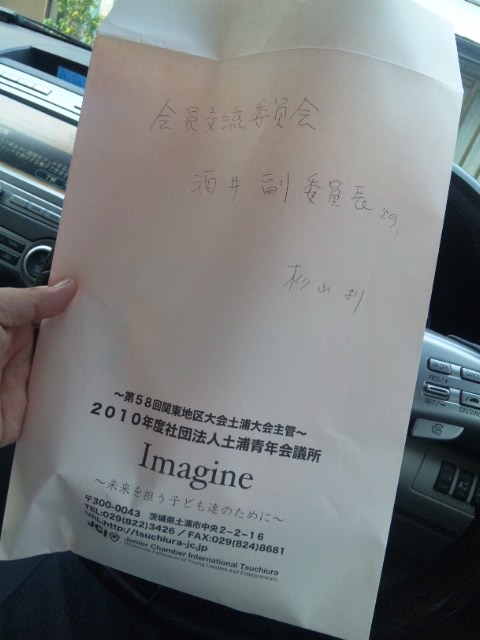 会員交流委員会
酒井副委員長どの
杉山より
～第58回関東地区大会土浦大会主管～
2010年度社団法人土浦青年会議所
Imagine
～未来を担う子ども達のために～
〒300-0043 茨城県土浦市中央2-2-16
TEL:029(822)3426 / FAX:029(824)8681
URL:http://tsuchiura-jc.jp
JCI Junior Chamber International Tsuchiura
Worldwide Federation of Young Leaders and Entrepreneurs